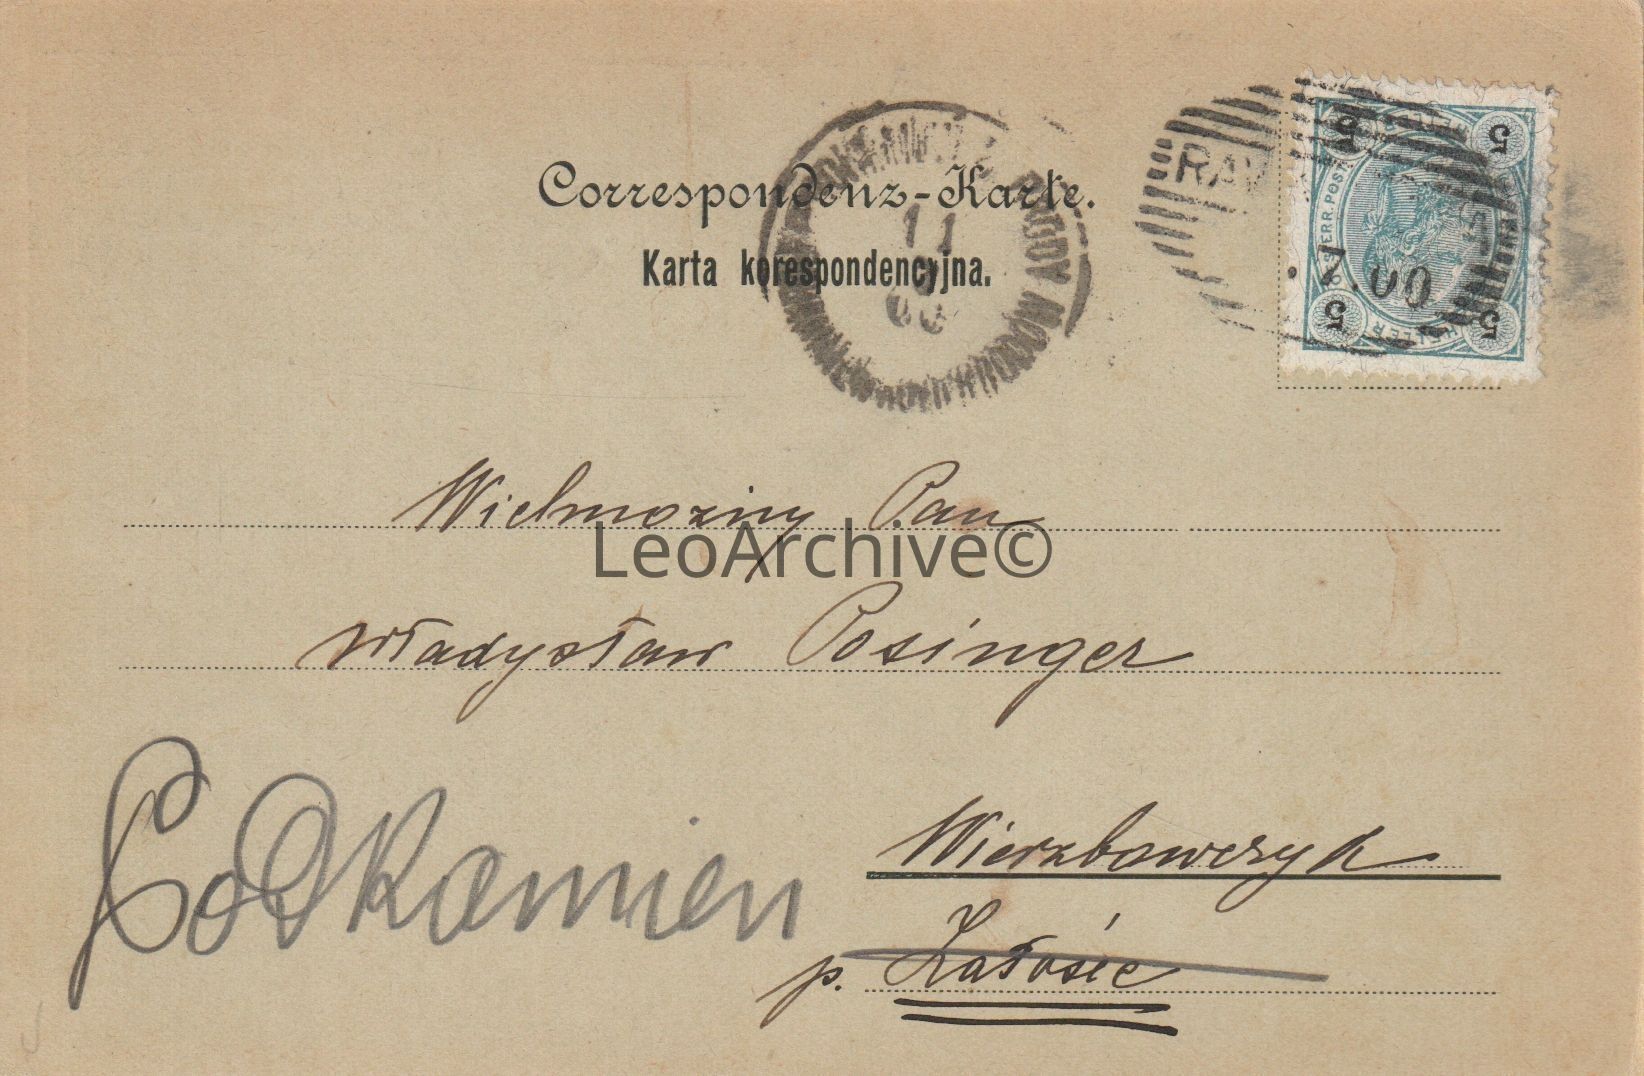 Correspondenz-Karte.
Karta korespondencyjna.
11
00
RAW
5 5
ÖSTERR. POST
HELLER
5 5
7.00
Wielmożny Pan
LeoArchive©
Władysław Posinger
Podkamien
Wierzbowczyk
p. Załośce